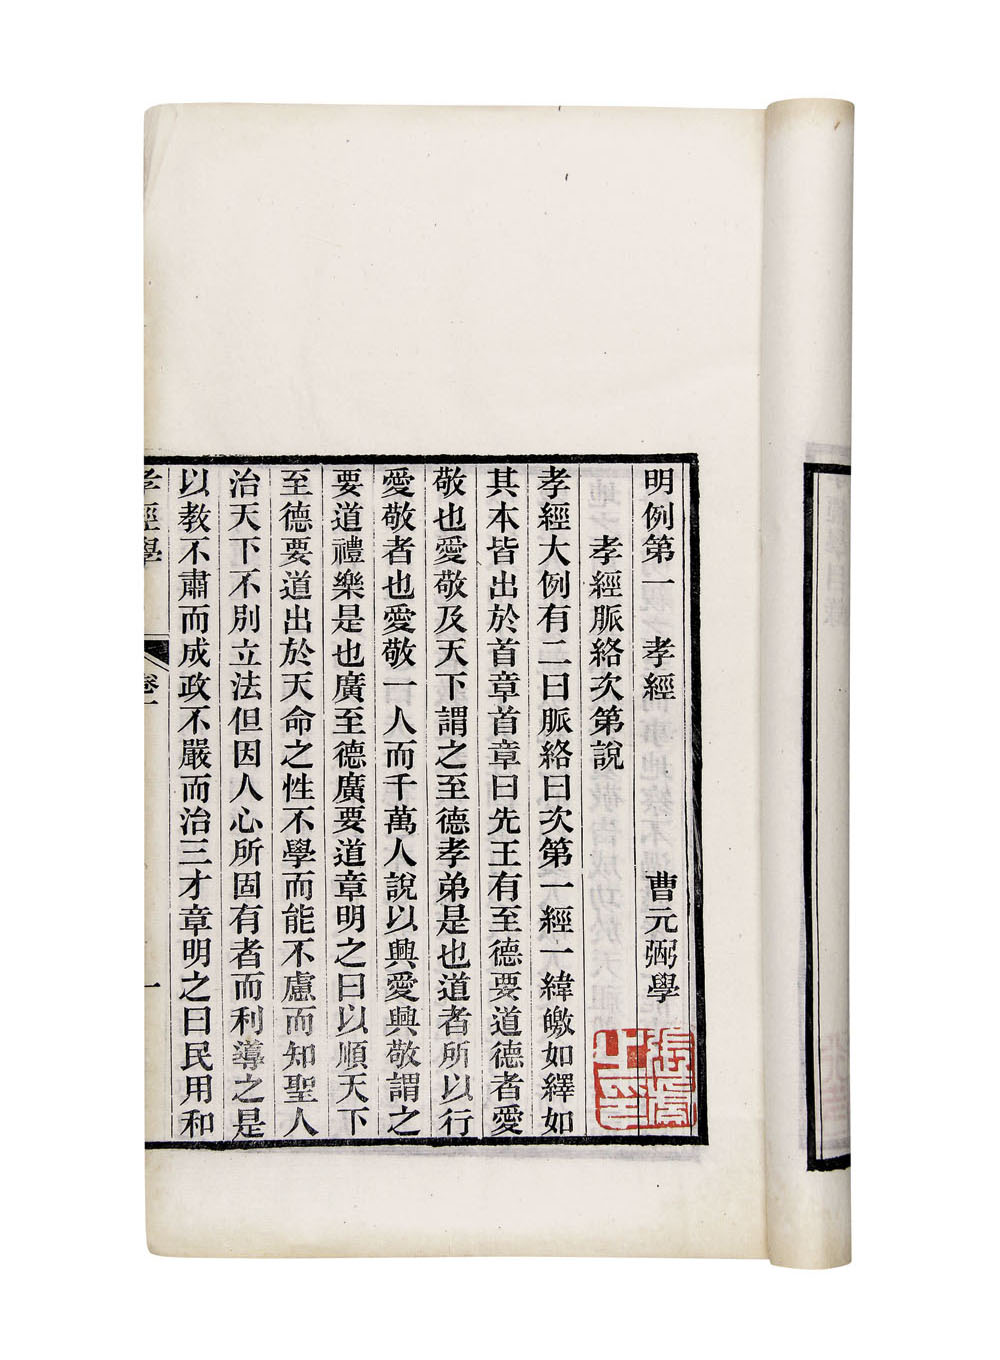 明例第一 孝經 曹元弼學
孝經脈絡次第說
孝經大例有二曰脈絡曰次第一經一緯皦如繹如
其本皆出於首章首章曰先王有至德要道德者愛
敬也愛敬及天下謂之至德孝弟是也道者所以行
愛敬者也愛敬一人而千萬人說以興愛興敬謂之
要道禮樂是也廣至德廣要道章明之曰以順天下
至德要道出於天命之性不學而能不慮而知聖人
治天下不別立法但因人心所固有者而利導之是
以教不肅而成政不嚴而治三才章明之曰民用和
孝經學 卷一 一